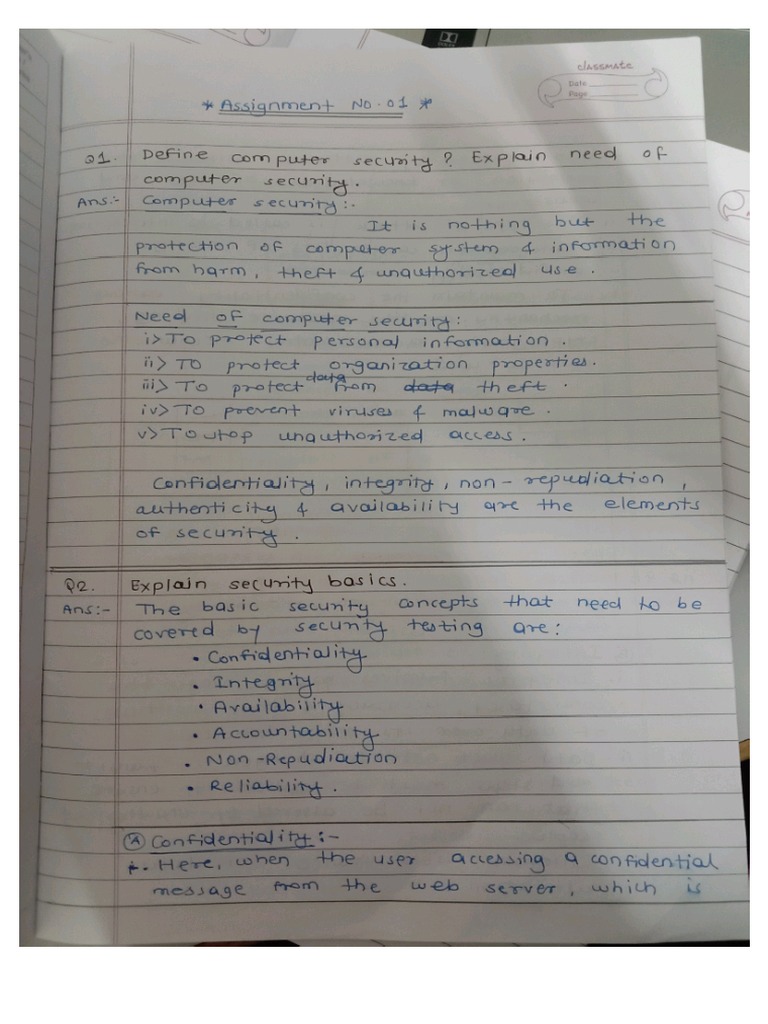 classmate
Date
Page
* Assignment No.01 *
Q1. Define computer security? Explain need of
computer security.
Ans:- Computer security:-
It is nothing but the
protection of computer system & information
from harm, theft & unauthorized use.
Need of computer security:
i> To protect personal information.
ii> To protect organization properties.
iii> To protect data from data theft.
iv> To prevent viruses & malware.
v> To stop unauthorized access.
Confidentiality, integrity, non-repudiation,
authenticity & availability are the elements
of security.
Q2. Explain security basics.
Ans:- The basic security concepts that need to be
covered by security testing are:
• Confidentiality
• Integrity
• Availability
• Accountability
• Non-Repudiation
• Reliability.
Confidentiality:-
Here, when the user accessing a confidential
message from the web server, which is